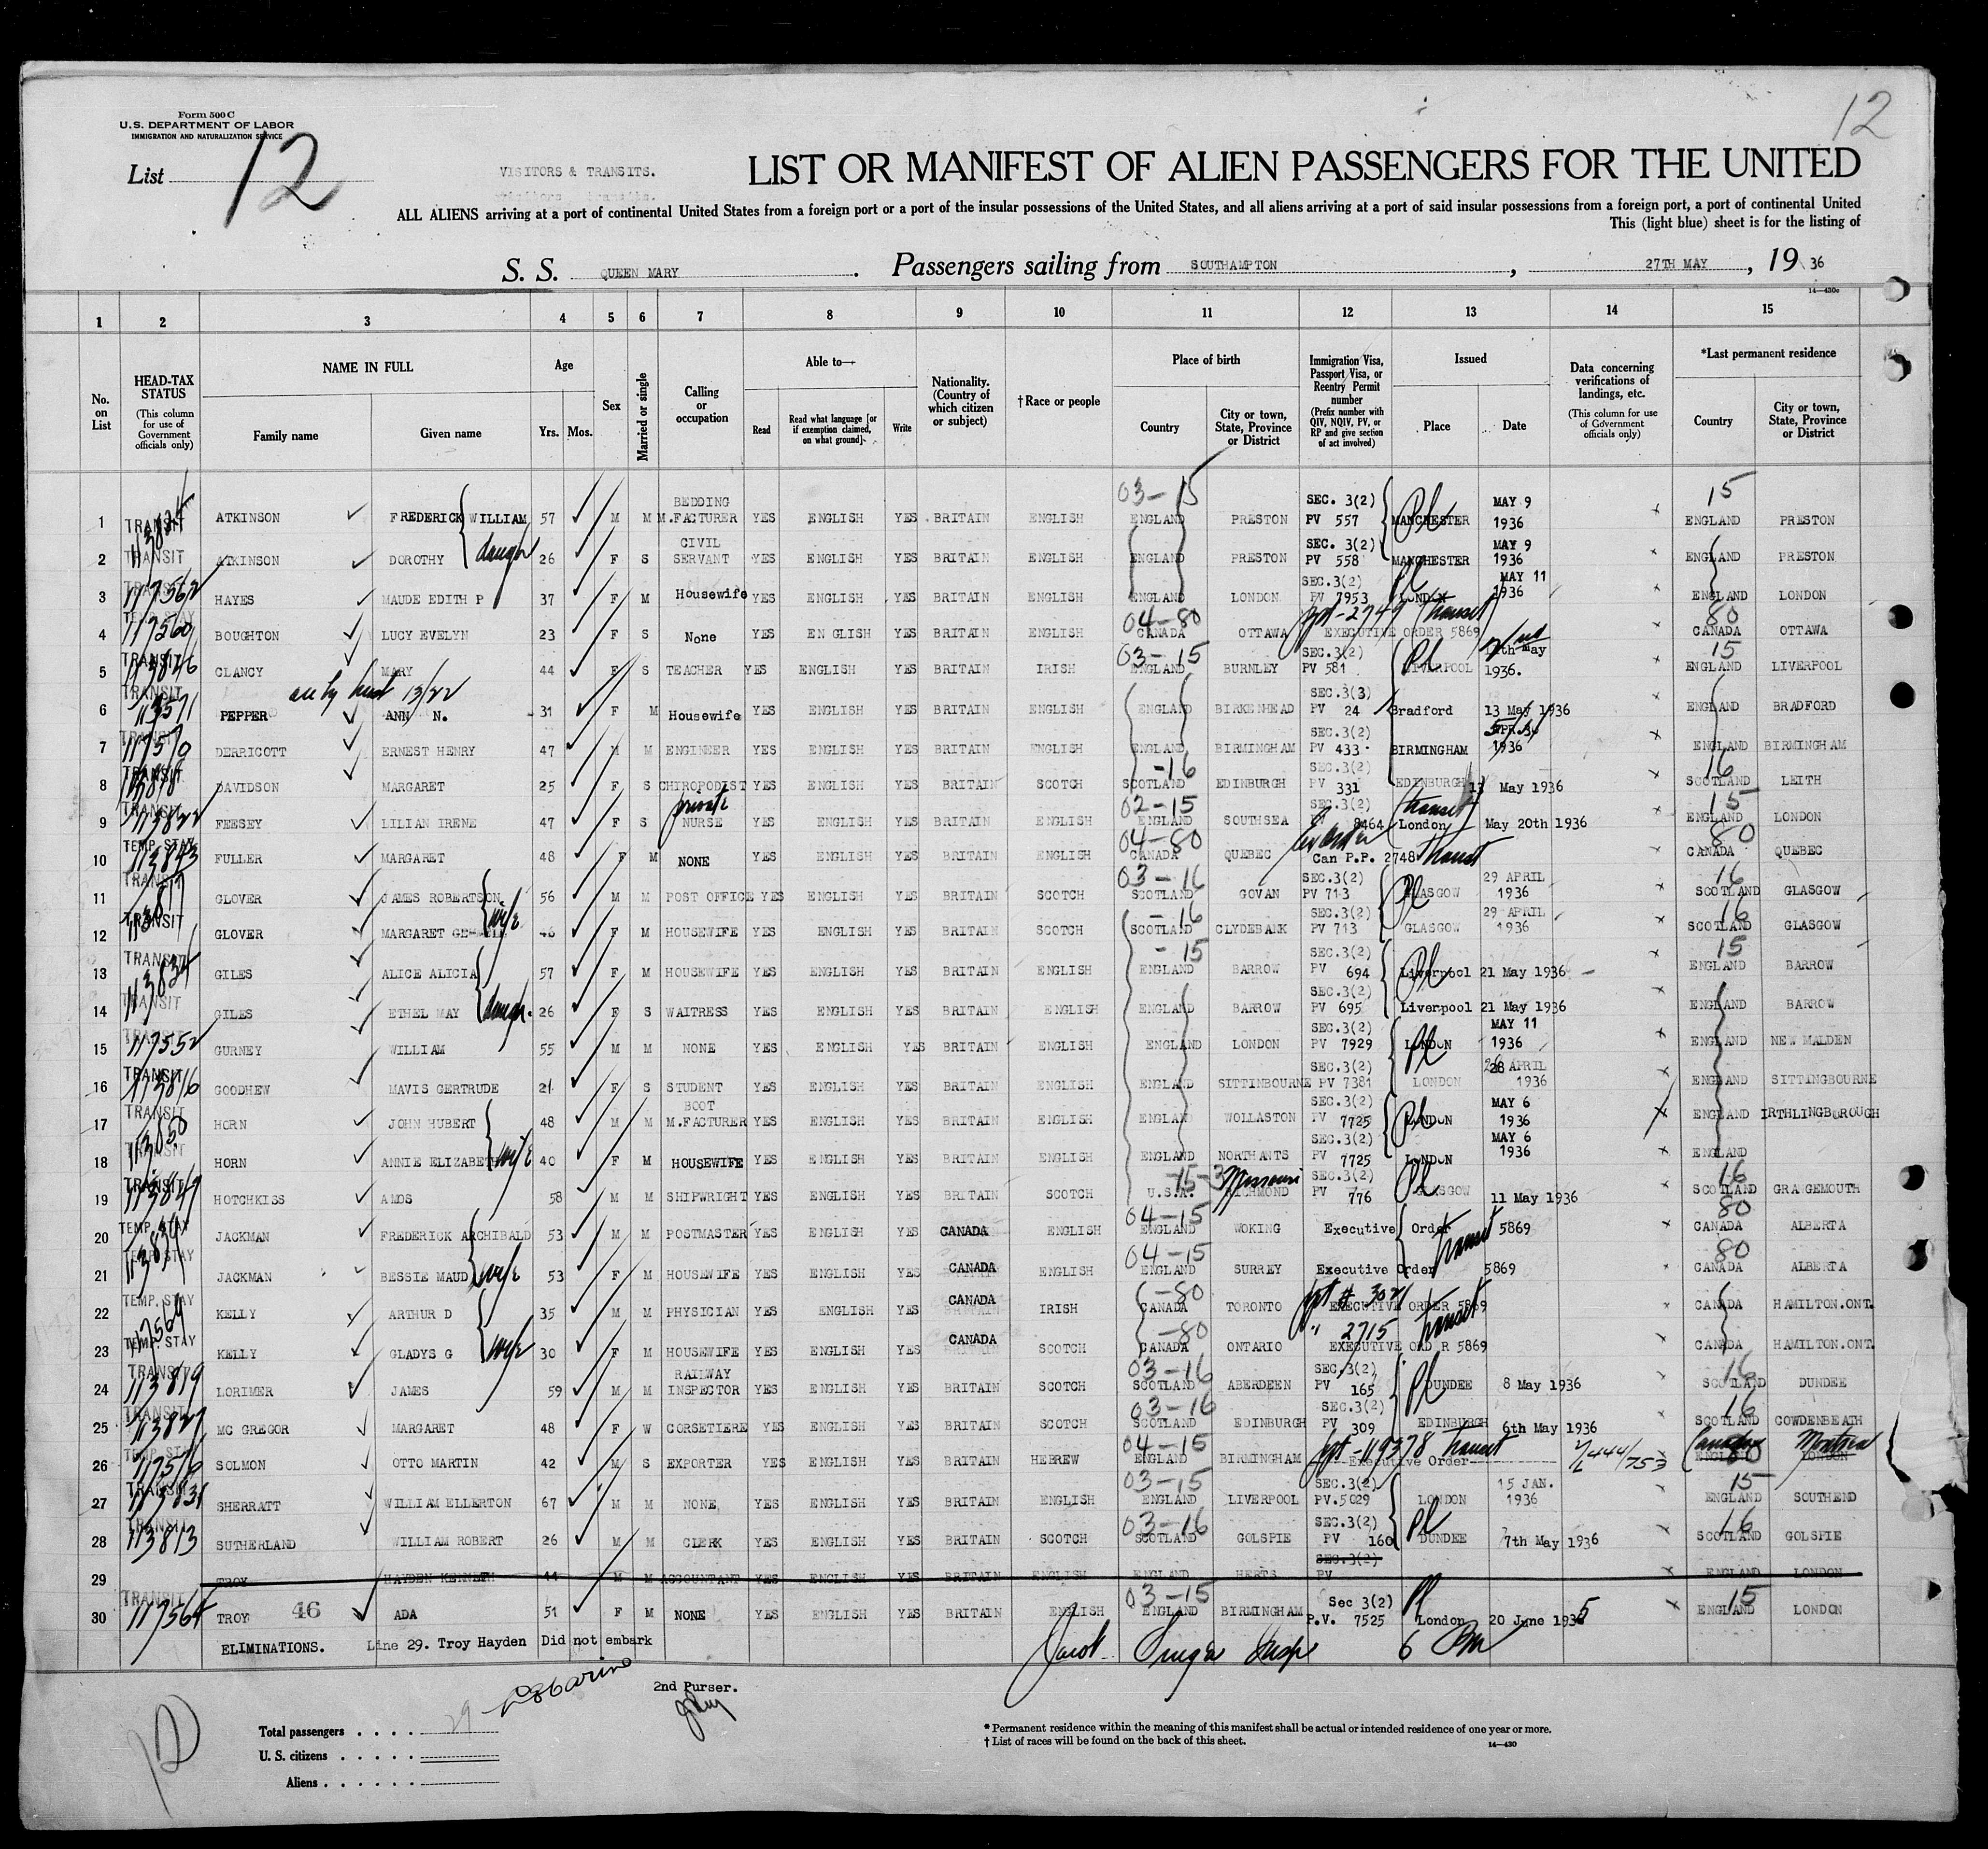 Form 500 C
U.S. DEPARTMENT OF LABOR
IMMIGRATION AND NATURALIZATION SERVICE
12
List 12
VISITORS & TRANSITS.
LIST OR MANIFEST OF ALIEN PASSENGERS FOR THE UNITED
ALL ALIENS arriving at a port of continental United States from a foreign port or a port of the insular possessions of the United States, and all aliens arriving at a port of said insular possessions from a foreign port, a port of continental United
This (light blue) sheet is for the listing of
S. S. QUEEN MARY. Passengers sailing from SOUTHAMPTON, 27TH MAY, 1936
14—430c
1 2 3 4 5 6 7 8 9 10 11 12 13 14 15
No. on List
HEAD-TAX STATUS (This column for use of Government officials only)
NAME IN FULL Family name Given name
Age Yrs. Mos.
Sex
Married or single
Calling or occupation
Able to— Read Read what language [or if exemption claimed, on what ground] Write
Nationality. (Country of which citizen or subject)
†Race or people
Place of birth Country City or town, State, Province or District
Immigration Visa, Passport Visa, or Reentry Permit number (Prefix number with QIV, NQIV, PV, or RP and give section of act involved)
Issued Place Date
Data concerning verifications of landings, etc. (This column for use of Government officials only)
*Last permanent residence Country City or town, State, Province or District
1 TRANSIT ATKINSON FREDERICK WILLIAM 57 M M BEDDING M.FACTURER YES ENGLISH YES BRITAIN ENGLISH 03-15 ENGLAND PRESTON SEC. 3(2) PV 557 MANCHESTER MAY 9 1936 15 ENGLAND PRESTON
2 TRANSIT ATKINSON DOROTHY daugh 26 F S CIVIL SERVANT YES ENGLISH YES BRITAIN ENGLISH ENGLAND PRESTON SEC. 3(2) PV 558 MANCHESTER MAY 9 1936 ENGLAND PRESTON
3 TRANSIT 117562 HAYES MAUDE EDITH P 37 F M Housewife YES ENGLISH YES BRITAIN ENGLISH ENGLAND LONDON SEC.3(2) PV 7953 LONDON MAY 11 1936 ENGLAND LONDON
4 TEMP. STAY 117560 BOUGHTON LUCY EVELYN 23 F S None YES ENGLISH YES BRITAIN ENGLISH 04-80 CANADA OTTAWA ppt-2749 Transit EXECUTIVE ORDER 5869 80 CANADA OTTAWA
5 TRANSIT 113826 CLANCY MARY 44 F S TEACHER YES ENGLISH YES BRITAIN IRISH 03-15 ENGLAND BURNLEY SEC.3(2) PV 581 LIVERPOOL May 1936. 15 ENGLAND LIVERPOOL
6 TRANSIT 113571 PEPPER ANN N. 31 F M Housewife YES ENGLISH YES BRITAIN ENGLISH ENGLAND BIRKENHEAD SEC.3(3) PV 24 Bradford 13 May 1936 ENGLAND BRADFORD
7 TRANSIT DERRICOTT ERNEST HENRY 47 M M ENGINEER YES ENGLISH YES BRITAIN ENGLISH ENGLAND BIRMINGHAM SEC.3(2) PV 433 BIRMINGHAM 1936 ENGLAND BIRMINGHAM
8 TRANSIT DAVIDSON MARGARET 25 F S CHIROPODIST YES ENGLISH YES BRITAIN SCOTCH -16 SCOTLAND EDINBURGH SEC.3(2) PV 331 EDINBURGH 13 May 1936 16 SCOTLAND LEITH
9 TRANSIT 113822 FEESEY LILIAN IRENE 47 F S private NURSE YES ENGLISH YES BRITAIN ENGLISH 02-15 ENGLAND SOUTHSEA SEC.3(2) 8464 London Transit May 20th 1936 15 ENGLAND LONDON
10 TEMP. STAY 113843 FULLER MARGARET 48 F M NONE YES ENGLISH YES BRITAIN ENGLISH 04-80 CANADA QUEBEC Can P.P. 2748 Transit 80 CANADA QUEBEC
11 TRANSIT GLOVER JAMES ROBERTSON 56 M M POST OFFICE YES ENGLISH YES BRITAIN SCOTCH 03-16 SCOTLAND GOVAN SEC.3(2) PV 713 GLASGOW 29 APRIL 1936 16 SCOTLAND GLASGOW
12 TRANSIT GLOVER MARGARET wife 46 F M HOUSEWIFE YES ENGLISH YES BRITAIN SCOTCH -16 SCOTLAND CLYDEBANK SEC.3(2) PV 713 GLASGOW 29 APRIL 1936 16 SCOTLAND GLASGOW
13 TRANSIT GILES ALICE ALICIA 57 F M HOUSEWIFE YES ENGLISH YES BRITAIN ENGLISH -15 ENGLAND BARROW SEC.3(2) PV 694 Liverpool 21 May 1936 15 ENGLAND BARROW
14 TRANSIT GILES ETHEL MAY daugh. 26 F S WAITRESS YES ENGLISH YES BRITAIN ENGLISH ENGLAND BARROW SEC.3(2) PV 695 Liverpool 21 May 1936 ENGLAND BARROW
15 117552 GURNEY WILLIAM 55 M M NONE YES ENGLISH YES BRITAIN ENGLISH ENGLAND LONDON SEC.3(2) PV 7929 LONDON MAY 11 1936 ENGLAND NEW MALDEN
16 TRANSIT 113816 GOODHEW MAVIS GERTRUDE 21 F S STUDENT YES ENGLISH YES BRITAIN ENGLISH ENGLAND SITTINBOURNE SEC.3(2) PV 7381 LONDON 28 APRIL 1936 ENGLAND SITTINGBOURNE
17 TRANSIT HORN JOHN HUBERT 48 M M BOOT M.FACTURER YES ENGLISH YES BRITAIN ENGLISH ENGLAND WOLLASTON SEC.3(2) PV 7725 LONDON MAY 6 1936 ENGLAND IRTHLINGBOROUGH
18 TRANSIT HORN ANNIE ELIZABETH wife 40 F M HOUSEWIFE YES ENGLISH YES BRITAIN ENGLISH ENGLAND NORTHANTS SEC.3(2) PV 7725 LONDON MAY 6 1936 ENGLAND
19 TRANSIT 113849 HOTCHKISS AMOS 58 M M SHIPWRIGHT YES ENGLISH YES BRITAIN SCOTCH U.S.A. RICHMOND Missouri SEC.3(2) PV 776 GLASGOW 11 May 1936 16 SCOTLAND GRAGEMOUTH
20 TEMP. STAY JACKMAN FREDERICK ARCHIBALD 53 M M POSTMASTER YES ENGLISH YES CANADA ENGLISH 04-15 ENGLAND WOKING Executive Order 5869 Transit 80 CANADA ALBERTA
21 TEMP. STAY JACKMAN BESSIE MAUD wife 53 F M HOUSEWIFE YES ENGLISH YES CANADA ENGLISH 04-15 ENGLAND SURREY Executive Order 5869 80 CANADA ALBERTA
22 TEMP. STAY KELLY ARTHUR D 35 M M PHYSICIAN YES ENGLISH YES CANADA IRISH -80 CANADA TORONTO ppt # 3021 EXECUTIVE ORDER 5869 Transit CANADA HAMILTON.ONT.
23 TEMP. STAY 117564 KELLY GLADYS G wife 30 F M HOUSEWIFE YES ENGLISH YES CANADA SCOTCH -80 CANADA ONTARIO " 2715 EXECUTIVE ORD R 5869 CANADA HAMILTON.ONT.
24 TRANSIT 113819 LORIMER JAMES 59 M M RAILWAY INSPECTOR YES ENGLISH YES BRITAIN SCOTCH 03-16 SCOTLAND ABERDEEN SEC.3(2) PV 165 DUNDEE 8 May 1936 16 SCOTLAND DUNDEE
25 TRANSIT 113827 MC GREGOR MARGARET 48 F W CORSETIERE YES ENGLISH YES BRITAIN SCOTCH 03-16 SCOTLAND EDINBURGH SEC.3(2) PV 309 EDINBURGH 6th May 1936 16 SCOTLAND COWDENBEATH
26 TEMP. STAY 117576 SOLMON OTTO MARTIN 42 M S EXPORTER YES ENGLISH YES BRITAIN HEBREW 04-15 ENGLAND BIRMINGHAM ppt-119378 Transit Executive Order Canada ENGLAND LONDON
27 TRANSIT SHERRATT WILLIAM ELLERTON 67 M M NONE YES ENGLISH YES BRITAIN ENGLISH 03-15 ENGLAND LIVERPOOL SEC.3(2) PV.5029 LONDON 15 JAN. 1936 15 ENGLAND SOUTHEND
28 TRANSIT 113813 SUTHERLAND WILLIAM ROBERT 26 M M CLERK YES ENGLISH YES BRITAIN SCOTCH 03-16 SCOTLAND GOLSPIE SEC.3(2) PV 160 DUNDEE 7th May 1936 16 SCOTLAND GOLSPIE
29 TROY HAYDEN KENNETH 44 M M ACCOUNTANT YES ENGLISH YES BRITAIN ENGLISH ENGLAND HERTS SEC.3(2) PV ENGLAND LONDON
30 TRANSIT 117564 TROY 46 ADA 51 F M NONE YES ENGLISH YES BRITAIN ENGLISH 03-15 ENGLAND BIRMINGHAM Sec 3(2) P.V. 7525 London 20 June 1935 15 ENGLAND LONDON
ELIMINATIONS. Line 29. Troy Hayden Did not embark
2nd Purser.
Total passengers . . . . 29
U. S. citizens . . . . .
Aliens . . . . . .
* Permanent residence within the meaning of this manifest shall be actual or intended residence of one year or more.
† List of races will be found on the back of this sheet.
14—430